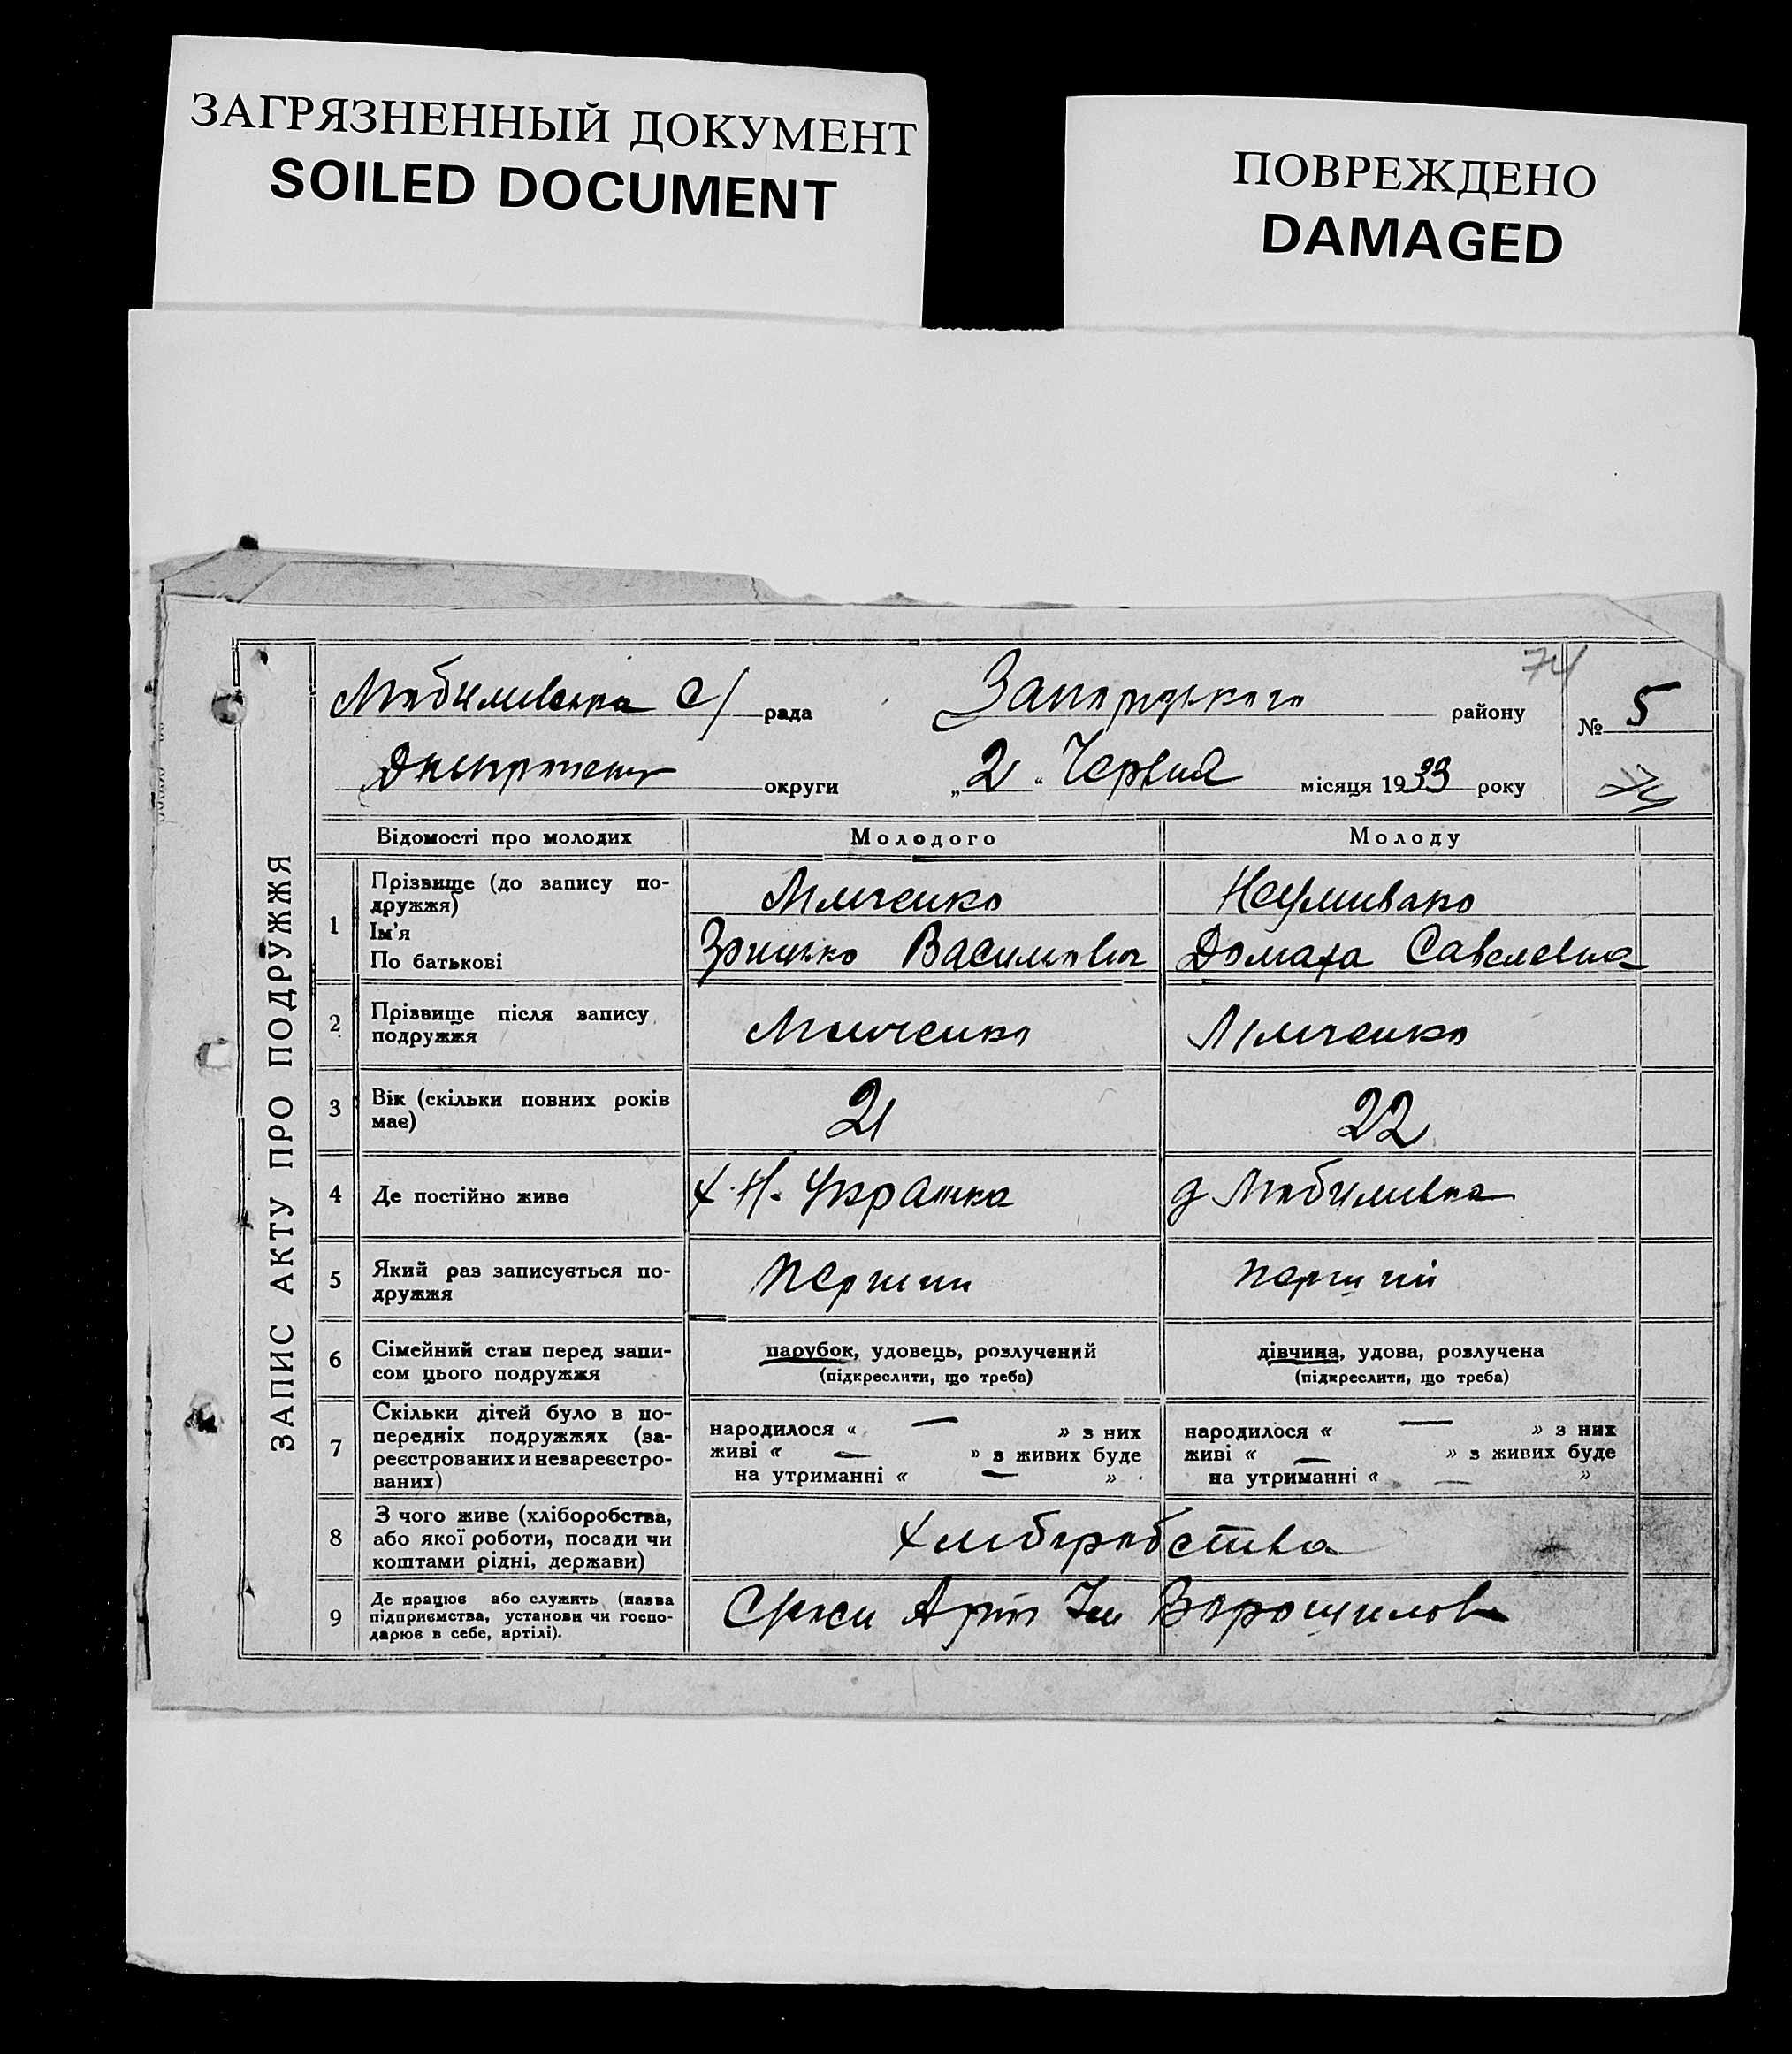 ЗАГРЯЗНЕННЫЙ ДОКУМЕНТ
SOILED DOCUMENT
ПОВРЕЖДЕНО
DAMAGED
ЗАПИС АКТУ ПРО ПОДРУЖЖЯ
74
С/ рада
району
№ 5
округи
„2“ Червня місяця 1933 року
74
Відомості про молодих
Молодого
Молоду
1
Прізвище (до запису по-
дружжя)
Ім'я
По батькові
Неумивако
Грицько Василькович
Домаха Савелевна
2
Прізвище після запису
подружжя
3
Вік (скільки повних років
має)
21
22
4
Де постійно живе
х. Н. Украинка
д Любимивка
5
Який раз записується по-
дружжя
Перший
перший
6
Сімейний стан перед запи-
сом цього подружжя
парубок, удовець, розлучений
(підкреслити, що треба)
дівчина, удова, розлучена
(підкреслити, що треба)
7
Скільки дітей було в по-
передніх подружжях (за-
реєстрованих и незареєстро-
ваних)
народилося « — » з них
живі « — » з живих буде
на утриманні « — »
народилося « — » з них
живі « — » з живих буде
на утриманні « — »
8
З чого живе (хліборобства,
або якої роботи, посади чи
коштами рідні, держави)
хлиборобства
9
Де працює або служить (назва
підприємства, установи чи госпо-
дарює в себе, артілі).
Арт Им Ворошилова